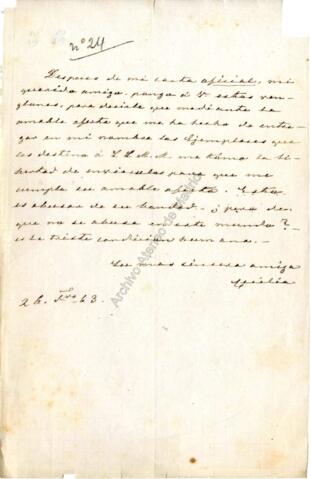 nº 24
Despues de mi carta oficial, mi
querido amigo, pongo á V. estos ren-
glones, para decirle que mediante la
amable oferta que me ha hecho de entre-
gar en mi nombre los Ejemplares que
les destino á S.S.M.M. me tomo la li-
bertad de enviárselos para que me
cumpla su amable oferta. Esto
es abusar de su bondad. ¿pero de
que no se abusa en este mundo?
es la triste condicion humana.
Su mas sincera amiga
Cecilia
26. 63
Archivo Ateneo de Madrid